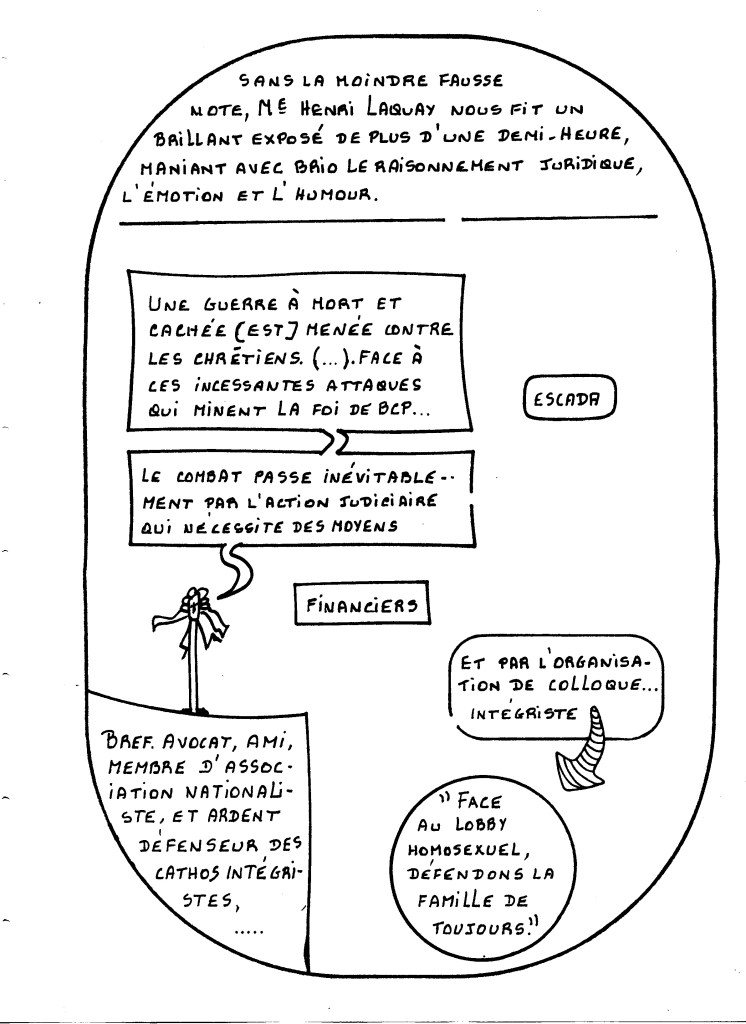 SANS LA MOINDRE FAUSSE
NOTE, ME HENRI LAQUAY NOUS FIT UN
BRILLANT EXPOSÉ DE PLUS D'UNE DEMI-HEURE,
MANIANT AVEC BRIO LE RAISONNEMENT JURIDIQUE,
L'ÉMOTION ET L'HUMOUR.
UNE GUERRE À MORT ET
CACHÉE [EST] MENÉE CONTRE
LES CHRÉTIENS. (...). FACE À
CES INCESSANTES ATTAQUES
QUI MINENT LA FOI DE BCP...
ESCADA
LE COMBAT PASSE INÉVITABLE--
MENT PAR L'ACTION JUDICIAIRE
QUI NÉCESSITE DES MOYENS
FINANCIERS
ET PAR L'ORGANISA-
TION DE COLLOQUE...
INTÉGRISTE
BREF. AVOCAT, AMI,
MEMBRE D'ASSOC-
IATION NATIONALI-
STE, ET ARDENT
DÉFENSEUR DES
CATHOS INTÉGRI-
STES,
.....
"FACE
AU LOBBY
HOMOSEXUEL,
DÉFENDONS LA
FAMILLE DE
TOUJOURS."